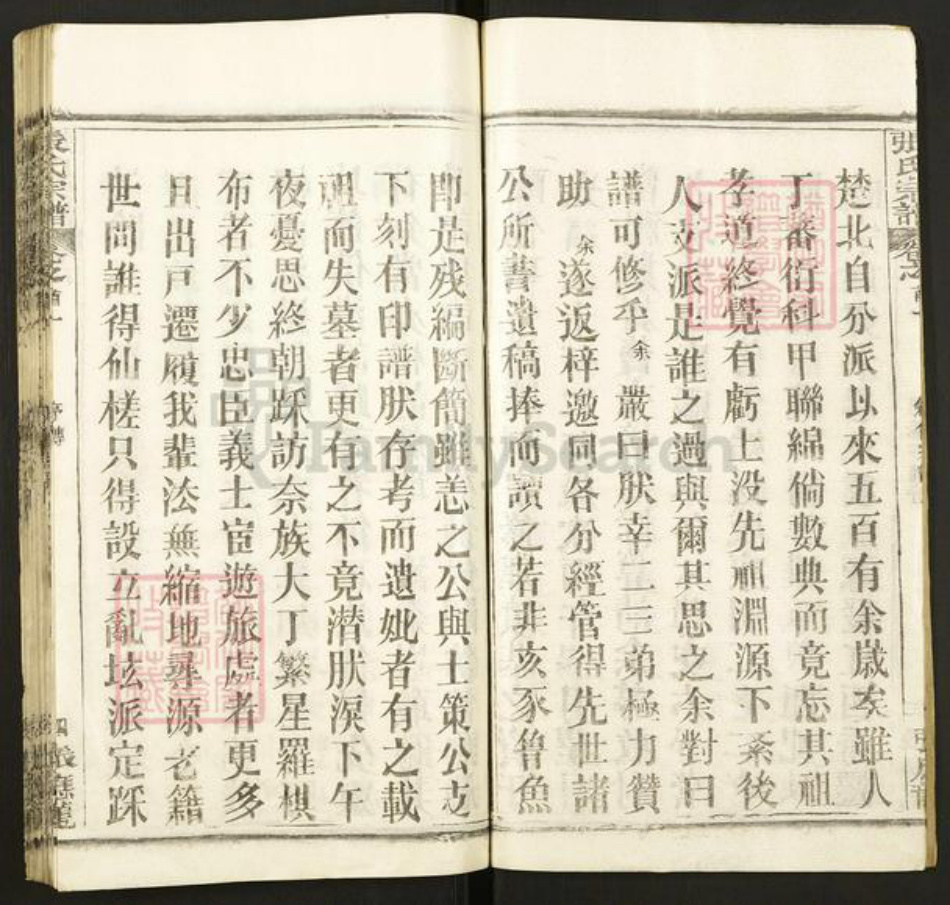 張氏宗譜
楚北自分派以來五百有余歲矣雖人
丁蕃衍科甲聯綿倘數典而竟忘其祖
孝道終覺有虧上没先祖淵源下紊後
人支派是誰之過與爾其思之余對曰
譜可修乎余嚴曰肰幸二三弟極力贊
助余遂返梓邀同各分經管得先世諸
公所著遺稿捧而讀之若非亥豕魯魚
即是残編斷簡雖恙之公與士策公支
下刻有印譜肰存考而遺妣者有之載
祖而失墓者更有之不竟潜肰淚下午
夜憂思終朝踩訪奈族大丁繁星羅棋
布者不少忠臣義士宦遊旅處者更多
且出戸遷履我輩法無縮地尋源老籍
世間誰得仙槎只得設立亂坛派定踩
FamilySearch